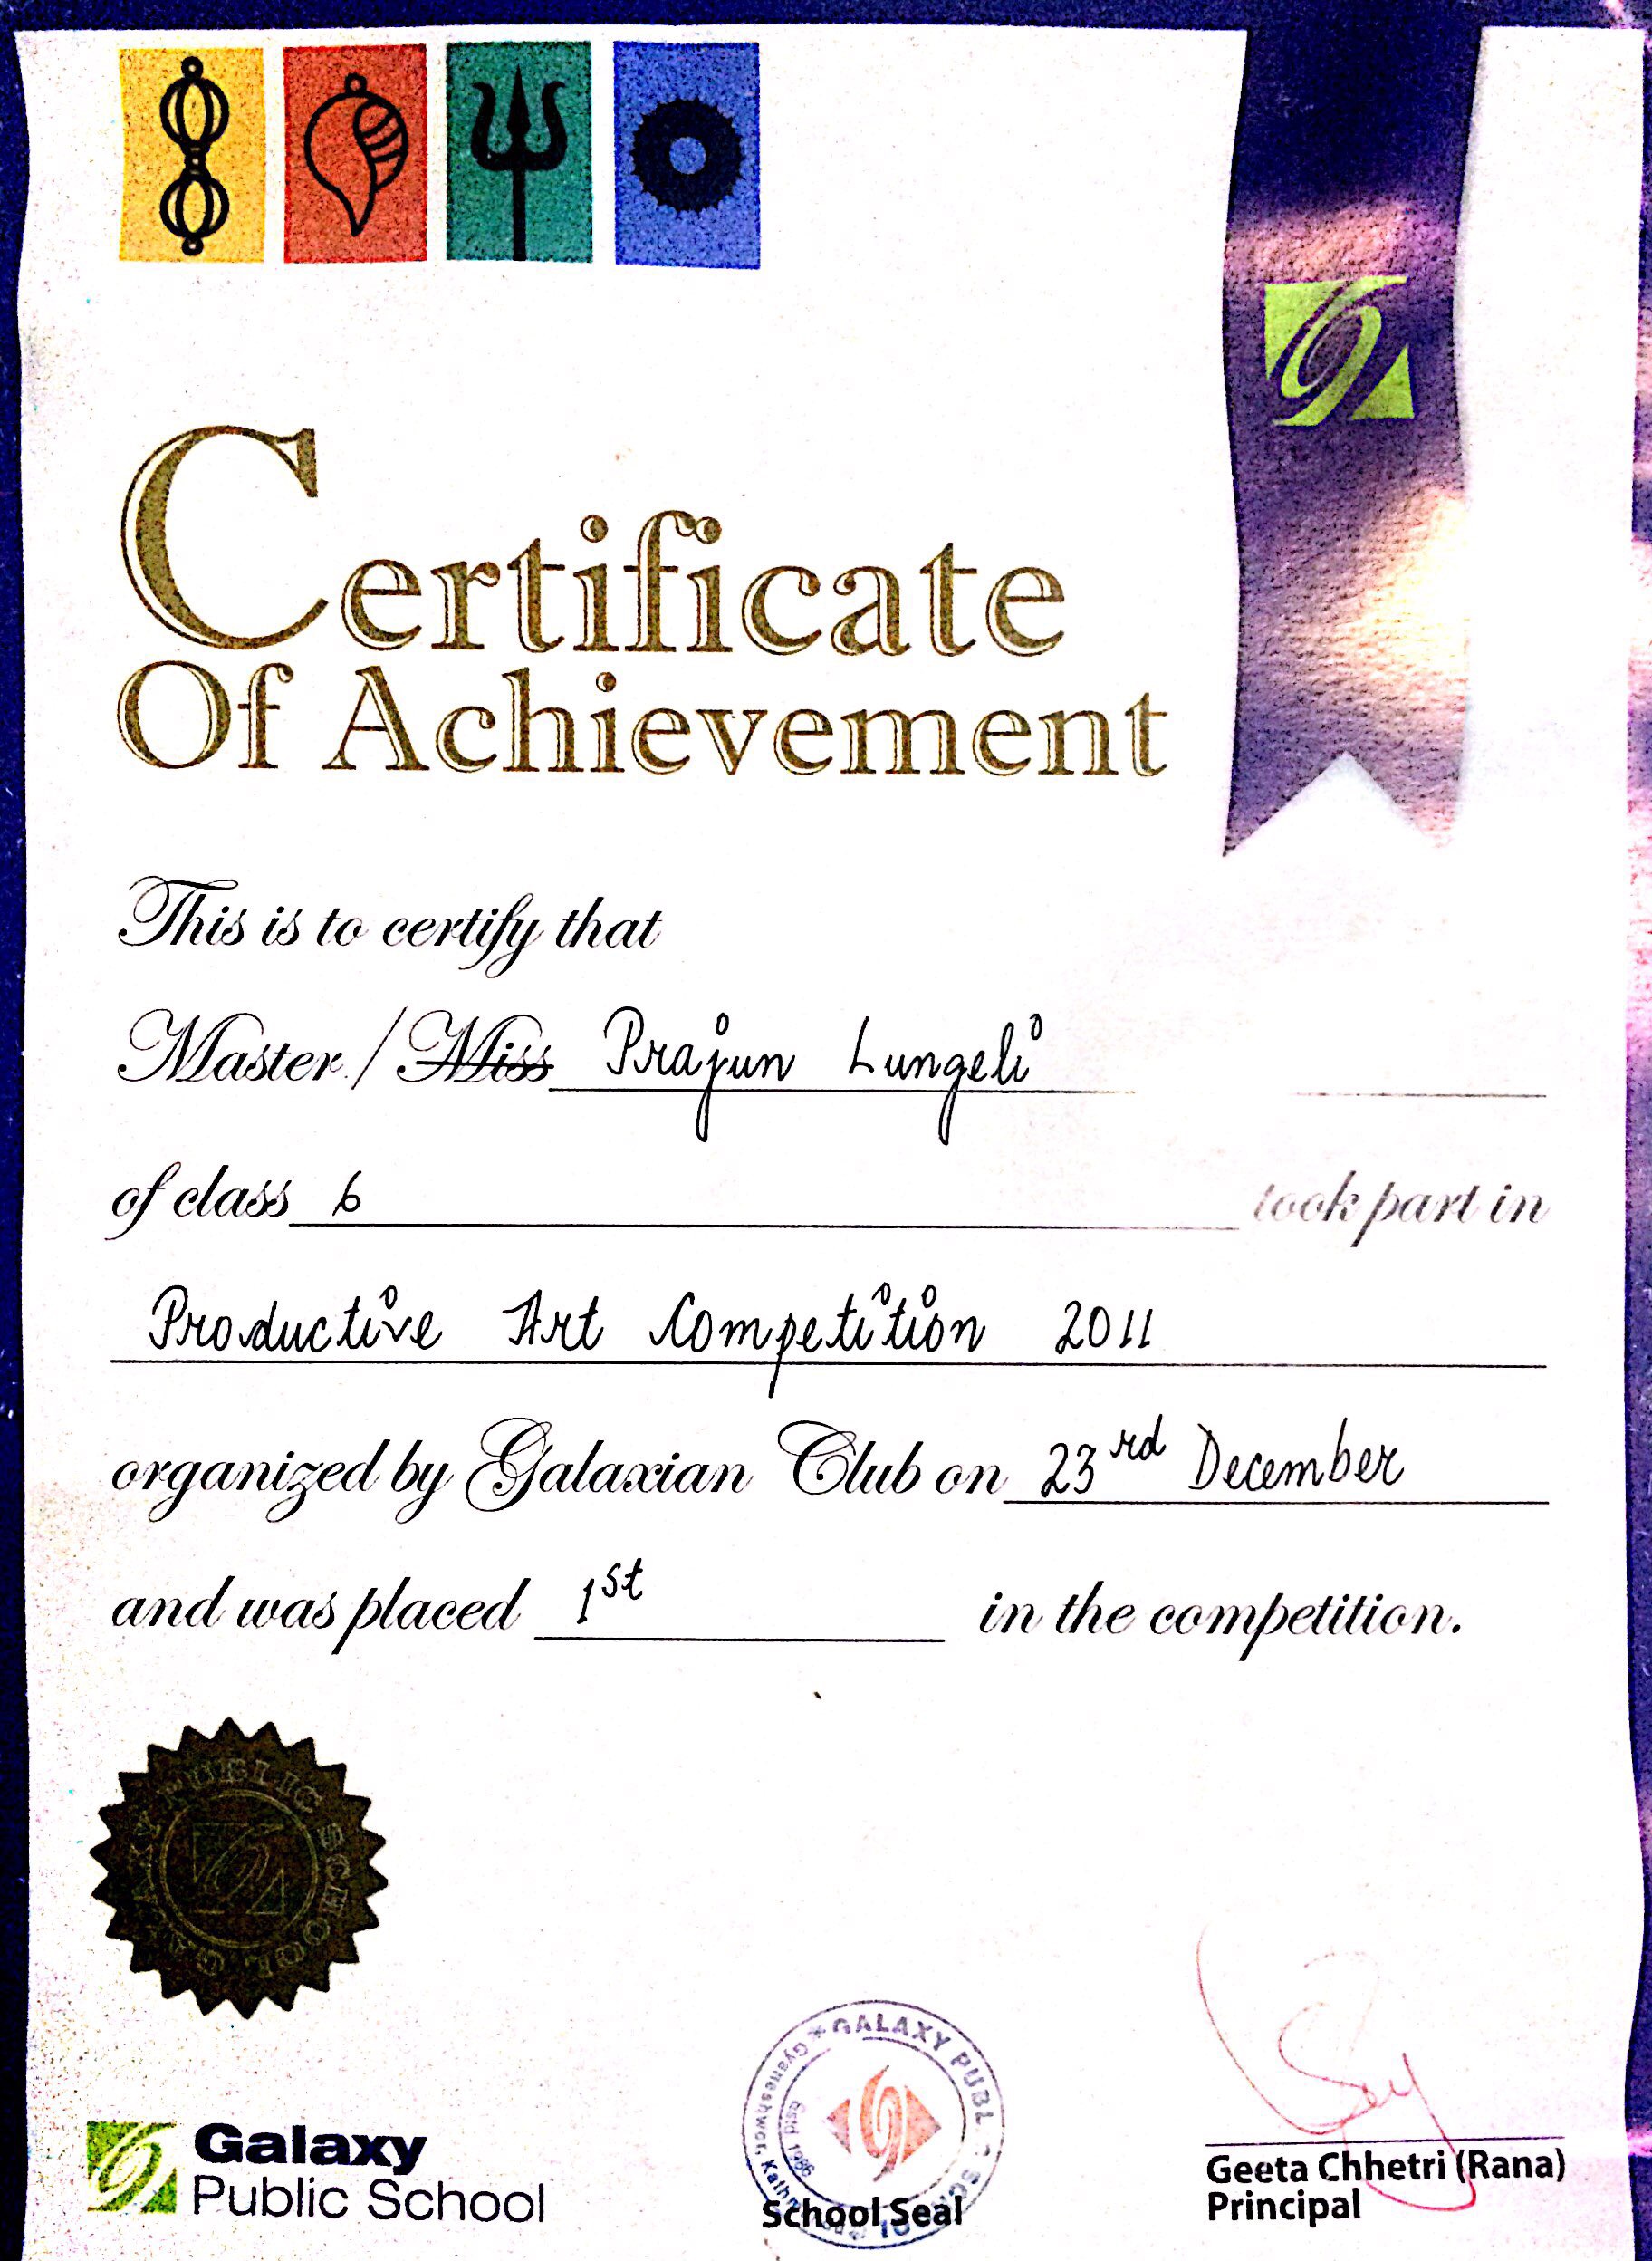 Certificate
Of Achievement
This is to certify that
Master / Miss Prajun Lungeli
of class 6 took part in
Productive Art Competition 2011
organized by Galaxian Club on 23rd December
and was placed 1st in the competition.
GALAXY PUBLIC SCHOOL
Galaxy
Public School
GALAXY PUBL
Gyaneshwor, Kath
Estd 1986
School Seal
Geeta Chhetri (Rana)
Principal